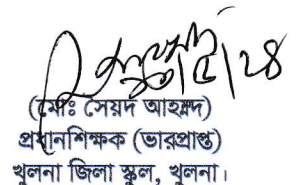 (মোঃ সৈয়দ আহম্মদ)
প্রধানশিক্ষক (ভারপ্রাপ্ত)
খুলনা জিলা স্কুল, খুলনা।